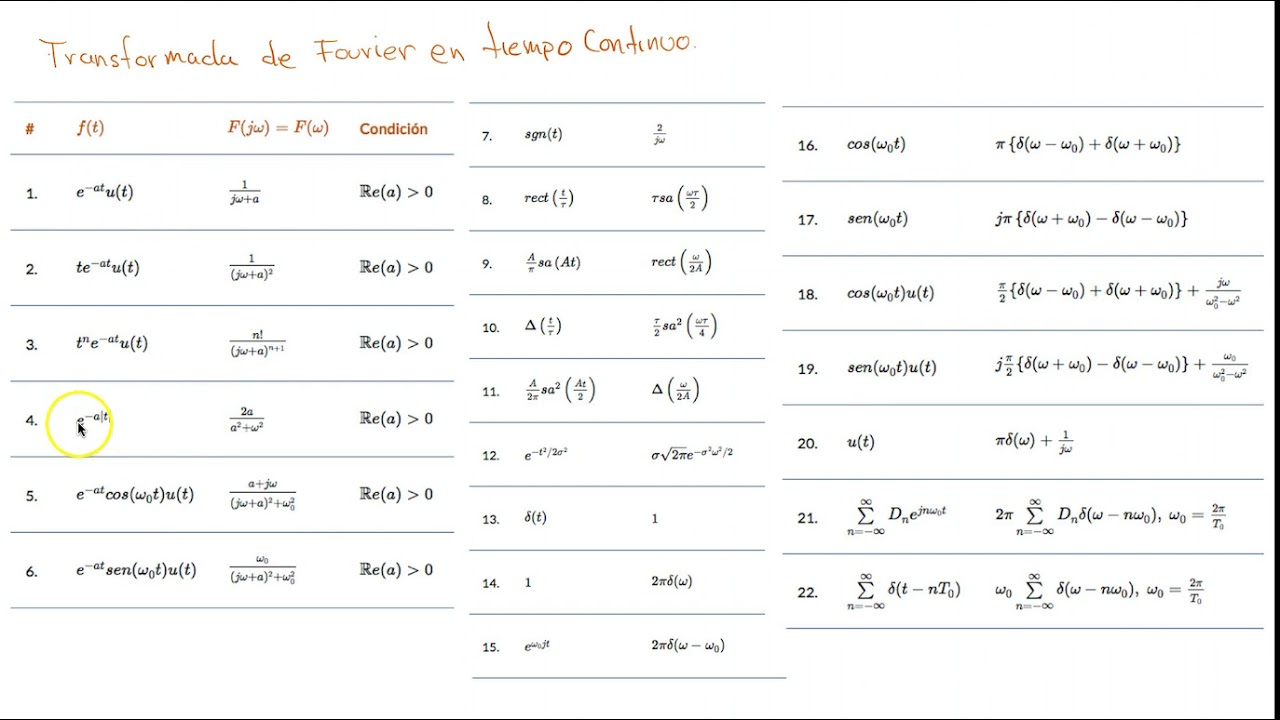 Transformada de Fourier en tiempo Continuo.
# f(t) F(jω) = F(ω) Condición
1. e^{-at}u(t) \frac{1}{jω+a} ℝe(a) > 0
2. te^{-at}u(t) \frac{1}{(jω+a)^2} ℝe(a) > 0
3. t^n e^{-at}u(t) \frac{n!}{(jω+a)^{n+1}} ℝe(a) > 0
4. e^{-a|t|} \frac{2a}{a^2+ω^2} ℝe(a) > 0
5. e^{-at}cos(ω_0t)u(t) \frac{a+jω}{(jω+a)^2+ω_0^2} ℝe(a) > 0
6. e^{-at}sen(ω_0t)u(t) \frac{ω_0}{(jω+a)^2+ω_0^2} ℝe(a) > 0
7. sgn(t) \frac{2}{jω}
8. rect(\frac{t}{τ}) τsa(\frac{ωτ}{2})
9. \frac{A}{π}sa(At) rect(\frac{ω}{2A})
10. Δ(\frac{t}{τ}) \frac{τ}{2}sa^2(\frac{ωτ}{4})
11. \frac{A}{2π}sa^2(\frac{At}{2}) Δ(\frac{ω}{2A})
12. e^{-t^2/2σ^2} σ\sqrt{2π}e^{-σ^2ω^2/2}
13. δ(t) 1
14. 1 2πδ(ω)
15. e^{ω_0jt} 2πδ(ω − ω_0)
16. cos(ω_0t) π{δ(ω − ω_0) + δ(ω + ω_0)}
17. sen(ω_0t) jπ{δ(ω + ω_0) − δ(ω − ω_0)}
18. cos(ω_0t)u(t) \frac{π}{2}{δ(ω − ω_0) + δ(ω + ω_0)} + \frac{jω}{ω_0^2−ω^2}
19. sen(ω_0t)u(t) j\frac{π}{2}{δ(ω + ω_0) − δ(ω − ω_0)} + \frac{ω_0}{ω_0^2−ω^2}
20. u(t) πδ(ω) + \frac{1}{jω}
21. \sum_{n=-∞}^{∞} D_n e^{jnω_0t} 2π \sum_{n=-∞}^{∞} D_nδ(ω − nω_0), ω_0 = \frac{2π}{T_0}
22. \sum_{n=-∞}^{∞} δ(t − nT_0) ω_0 \sum_{n=-∞}^{∞} δ(ω − nω_0), ω_0 = \frac{2π}{T_0}